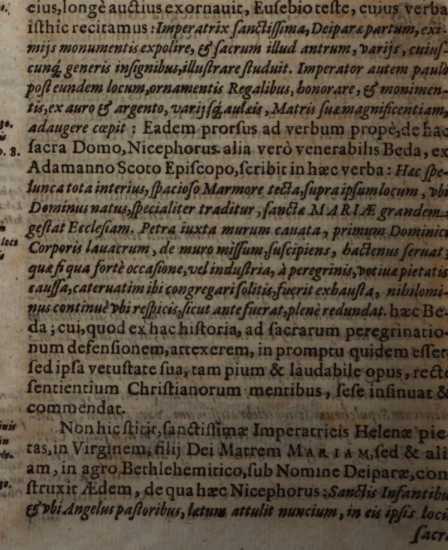 eius, longè auctius exornauit, Eusebio teste, cuius verba
isthic recitamus: Imperatrix sanctissima, Deiparæ partum, exi-
mijs monumentis expolire, & sacrum illud antrum, varijs, cuius-
cunq; generis insignibus, illustrare studuit. Imperator autem paulò
post eundem locum, ornamentis Regalibus, honorare, & monimen-
tis, ex auro & argento, varijsq; aulæis, Matris suæ magnificentiam,
adaugere cœpit: Eadem prorsus ad verbum propè, de hac
sacra Domo, Nicephorus. alia verò venerabilis Beda, ex
Adamanno Scoto Episcopo, scribit in hæc verba: Hæc spe-
lunca tota interius, spacioso Marmore tecta, supra ipsum locum, vbi
Dominus natus, specialiter traditur, sanctæ MARIÆ grandem
gestat Ecclesiam. Petra iuxta murum cauata, primum Dominici
Corporis lauacrum, de muro missum, suscipiens, hactenus seruat;
quæ si qua fortè occasione, vel industria, à peregrinis, votiuæ pietatis
caussa, cateruatim ibi congregari solitis, fuerit exhausta, nihilomi-
nus continuè vbi respicis, sicut ante fuerat, plenè redundat. hæc Be-
da; cui, quod ex hac historia, ad sacrarum peregrinatio-
num defensionem, attexerem, in promptu quidem esset
sed ipsa vetustate sua, tam pium & laudabile opus, rectè
sentientium Christianorum mentibus, sese insinuat &
commendat.
Non hic stitit, sanctissimæ Imperatricis Helenæ pie-
tas, in Virginem, filij Dei Matrem MARIAM, sed & ali
am, in agro Bethlehemitico, sub Nomine Deiparæ, con
struxit Ædem, de qua hæc Nicephorus: Sanctis Infantibus
& vbi Angelus pastoribus, lætum attulit nuncium, in eis ipsis loci
sacra
p. 8.
loci